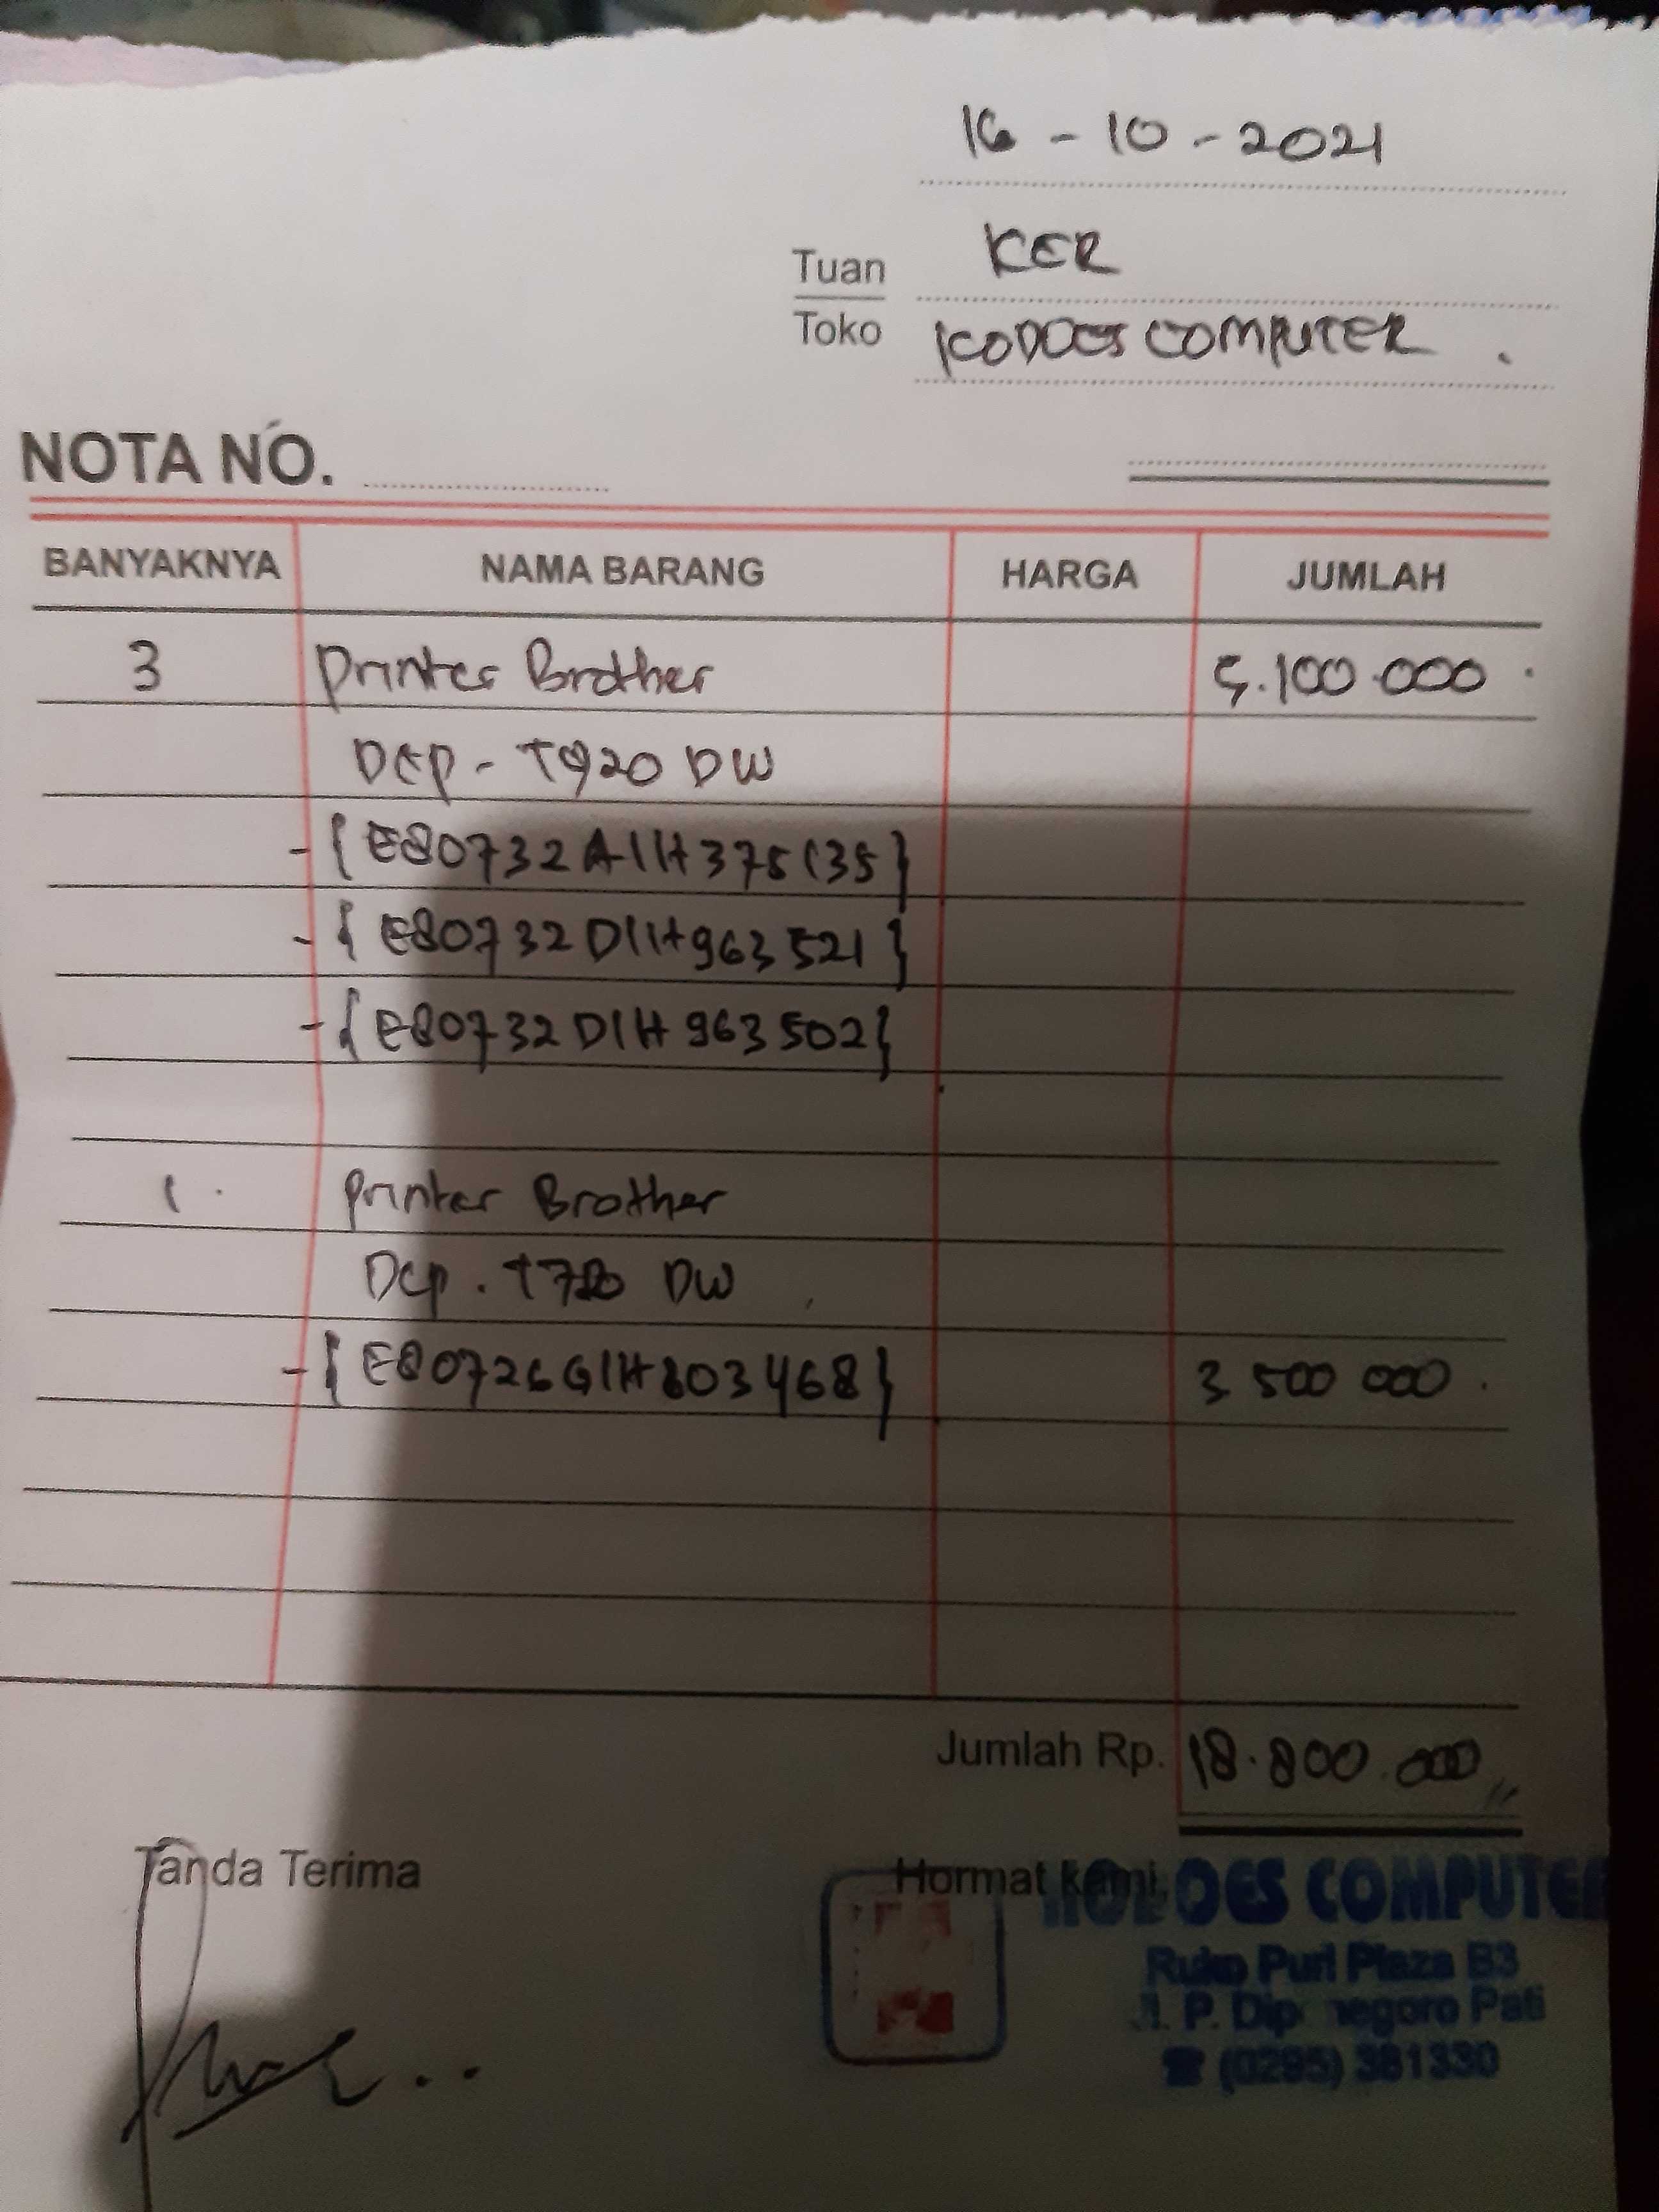 16 - 10 - 2021
Tuan KER
Toko KODOES COMPUTER.
NOTA NO.
BANYAKNYA NAMA BARANG HARGA JUMLAH
3 Printer Brother 5.100.000.
DCP - T920 DW
- {E80732A1H375135}
- {E80732D1H963521}
- {E80732D1H963502}
1. Printer Brother
Dcp. T720 DW
- {E80726G1H803468} 3 500 000.
Jumlah Rp. 18.800.000,,
Tanda Terima Hormat kami,
OES COMPUTER
Ruko Puri Plaza B3
Jl. P. Dip negoro Pati
☎ (0295) 381330